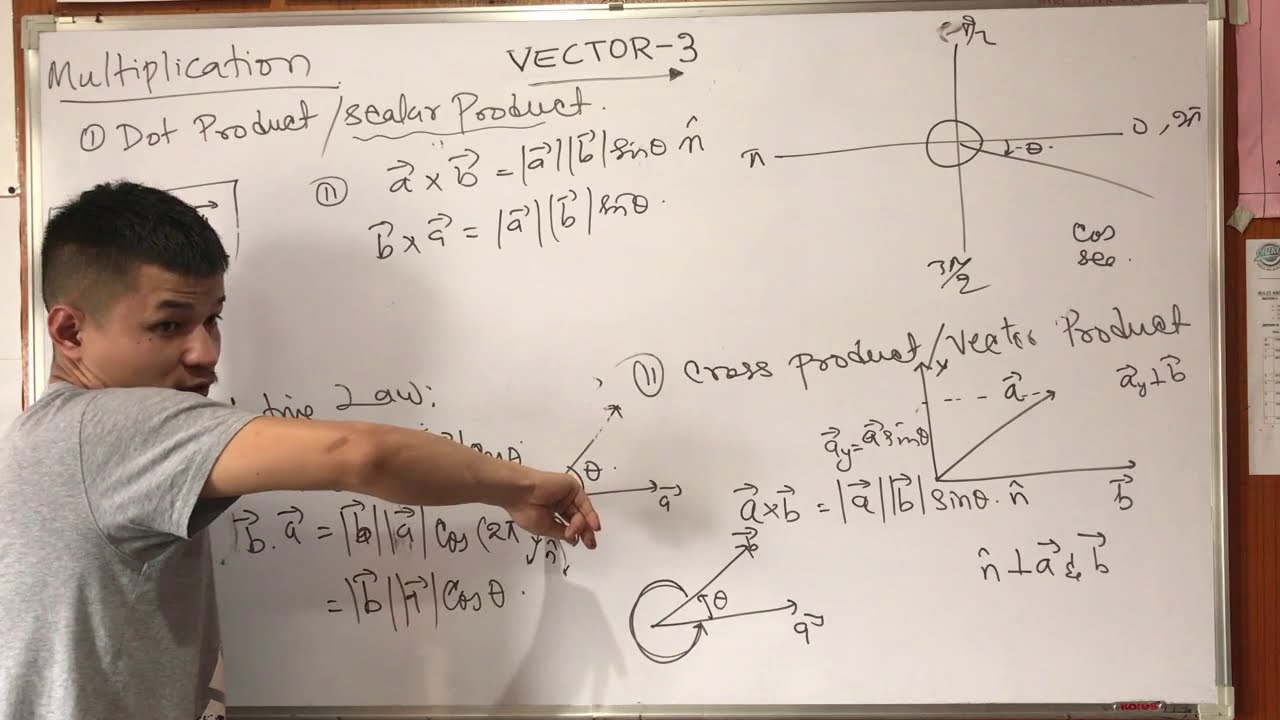 Multiplication
VECTOR-3
① Dot Product / scalar Product.
⑪ a⃗ × b⃗ = |a⃗||b⃗| sinθ n̂
b⃗ × a⃗ = |a⃗||b⃗| sinθ.
π
0, 2π
θ.
3π/2
Cos
sec.
⑪ Cross product / Vector Product
Law:
θ.
a⃗
n̂
b⃗. a⃗ = |b⃗||a⃗| Cos (2π
= |b⃗||a⃗| Cos θ.
a⃗
a⃗y ⊥ b⃗
a⃗y = a⃗ sinθ
b⃗
a⃗ × b⃗ = |a⃗||b⃗| sinθ. n̂
n̂ ⊥ a⃗ & b⃗
b⃗
θ
a⃗